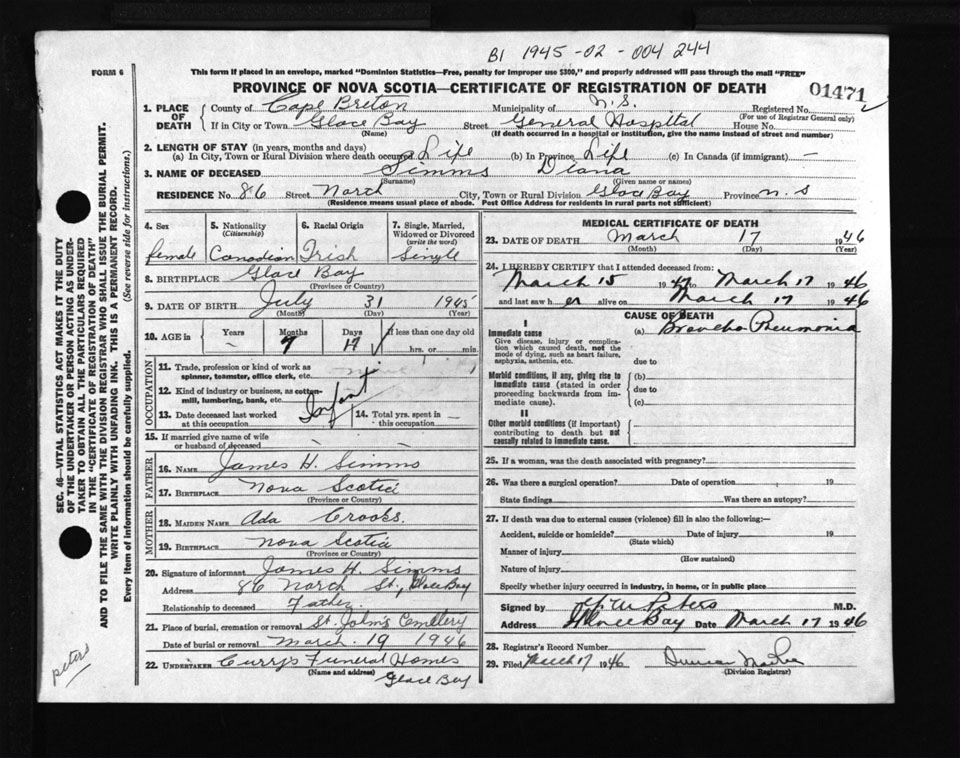 B1 1945-02-004244
FORM 6
This form if placed in an envelope, marked "Dominion Statistics—Free, penalty for improper use $300," and properly addressed will pass through the mail "FREE"
PROVINCE OF NOVA SCOTIA—CERTIFICATE OF REGISTRATION OF DEATH
01471
1. PLACE OF DEATH County of Cape Breton Municipality of N.S. Registered No.
(For use of Registrar General only)
If in City or Town Glace Bay Street General Hospital House No.
(Name) (If death occurred in a hospital or institution, give the name instead of street and number)
2. LENGTH OF STAY (in years, months and days)
(a) In City, Town or Rural Division where death occurred Life (b) In Province Life (c) In Canada (if immigrant) —
3. NAME OF DECEASED Simms Diana
(Surname) (Given name or names)
RESIDENCE No. 86 Street North City, Town or Rural Division Glace Bay Province N.S
(Residence means usual place of abode. Post Office Address for residents in rural parts not sufficient)
4. Sex female
5. Nationality (Citizenship) Canadian
6. Racial Origin Irish
7. Single, Married, Widowed or Divorced (write the word) Single
8. BIRTHPLACE Glace Bay
(Province or Country)
9. DATE OF BIRTH July 31 1945
(Month) (Day) (Year)
10. AGE in Years – Months 7 Days 17 If less than one day old
hrs. or min.
OCCUPATION
11. Trade, profession or kind of work as spinner, teamster, office clerk, etc.
12. Kind of industry or business, as cotton-mill, lumbering, bank, etc. Infant
13. Date deceased last worked at this occupation
14. Total yrs. spent in this occupation —
15. If married give name of wife or husband of deceased
FATHER
16. NAME James H. Simms
17. BIRTHPLACE Nova Scotia
(Province or Country)
MOTHER
18. MAIDEN NAME Ada Crooks.
19. BIRTHPLACE Nova Scotia
(Province or Country)
20. Signature of informant James H. Simms
Address 86 North St, Glace Bay
Relationship to deceased Father
21. Place of burial, cremation or removal St. John's Cemetery
Date of burial or removal March 19 1946
22. UNDERTAKER Curry's Funeral Homes
(Name and address) Glace Bay
MEDICAL CERTIFICATE OF DEATH
23. DATE OF DEATH March 17 1946
(Month) (Day) (Year)
24. I HEREBY CERTIFY that I attended deceased from:
March 15 19 to March 17 1946
and last saw her alive on March 17 1946
CAUSE OF DEATH
I
Immediate cause (a) Broncho Pneumonia
Give disease, injury or complication which caused death, not the mode of dying, such as heart failure, asphyxia, asthenia, etc.
due to
Morbid conditions, if any, giving rise to immediate cause (stated in order proceeding backwards from immediate cause). (b)
due to
(c)
II
Other morbid conditions (if important) contributing to death but not causally related to immediate cause.
25. If a woman, was the death associated with pregnancy?
26. Was there a surgical operation? Date of operation 19
State findings Was there an autopsy?
27. If death was due to external causes (violence) fill in also the following:—
Accident, suicide or homicide? Date of injury 19
(State which)
Manner of injury
(How sustained)
Nature of injury
Specify whether injury occurred in industry, in home, or in public place
Signed by Peters M.D.
Address Glace Bay Date March 17 1946
28. Registrar's Record Number
29. Filed March 17 1946 Duncan
(Division Registrar)
SEC. 46—VITAL STATISTICS ACT MAKES IT THE DUTY
OF THE UNDERTAKER OR PERSON ACTING AS UNDER-
TAKER TO OBTAIN ALL THE PARTICULARS REQUIRED
IN THE "CERTIFICATE OF REGISTRATION OF DEATH"
AND TO FILE THE SAME WITH THE DIVISION REGISTRAR WHO SHALL ISSUE THE BURIAL PERMIT.
WRITE PLAINLY WITH UNFADING INK. THIS IS A PERMANENT RECORD.
Every item of information should be carefully supplied. (See reverse side for instructions.)
peters